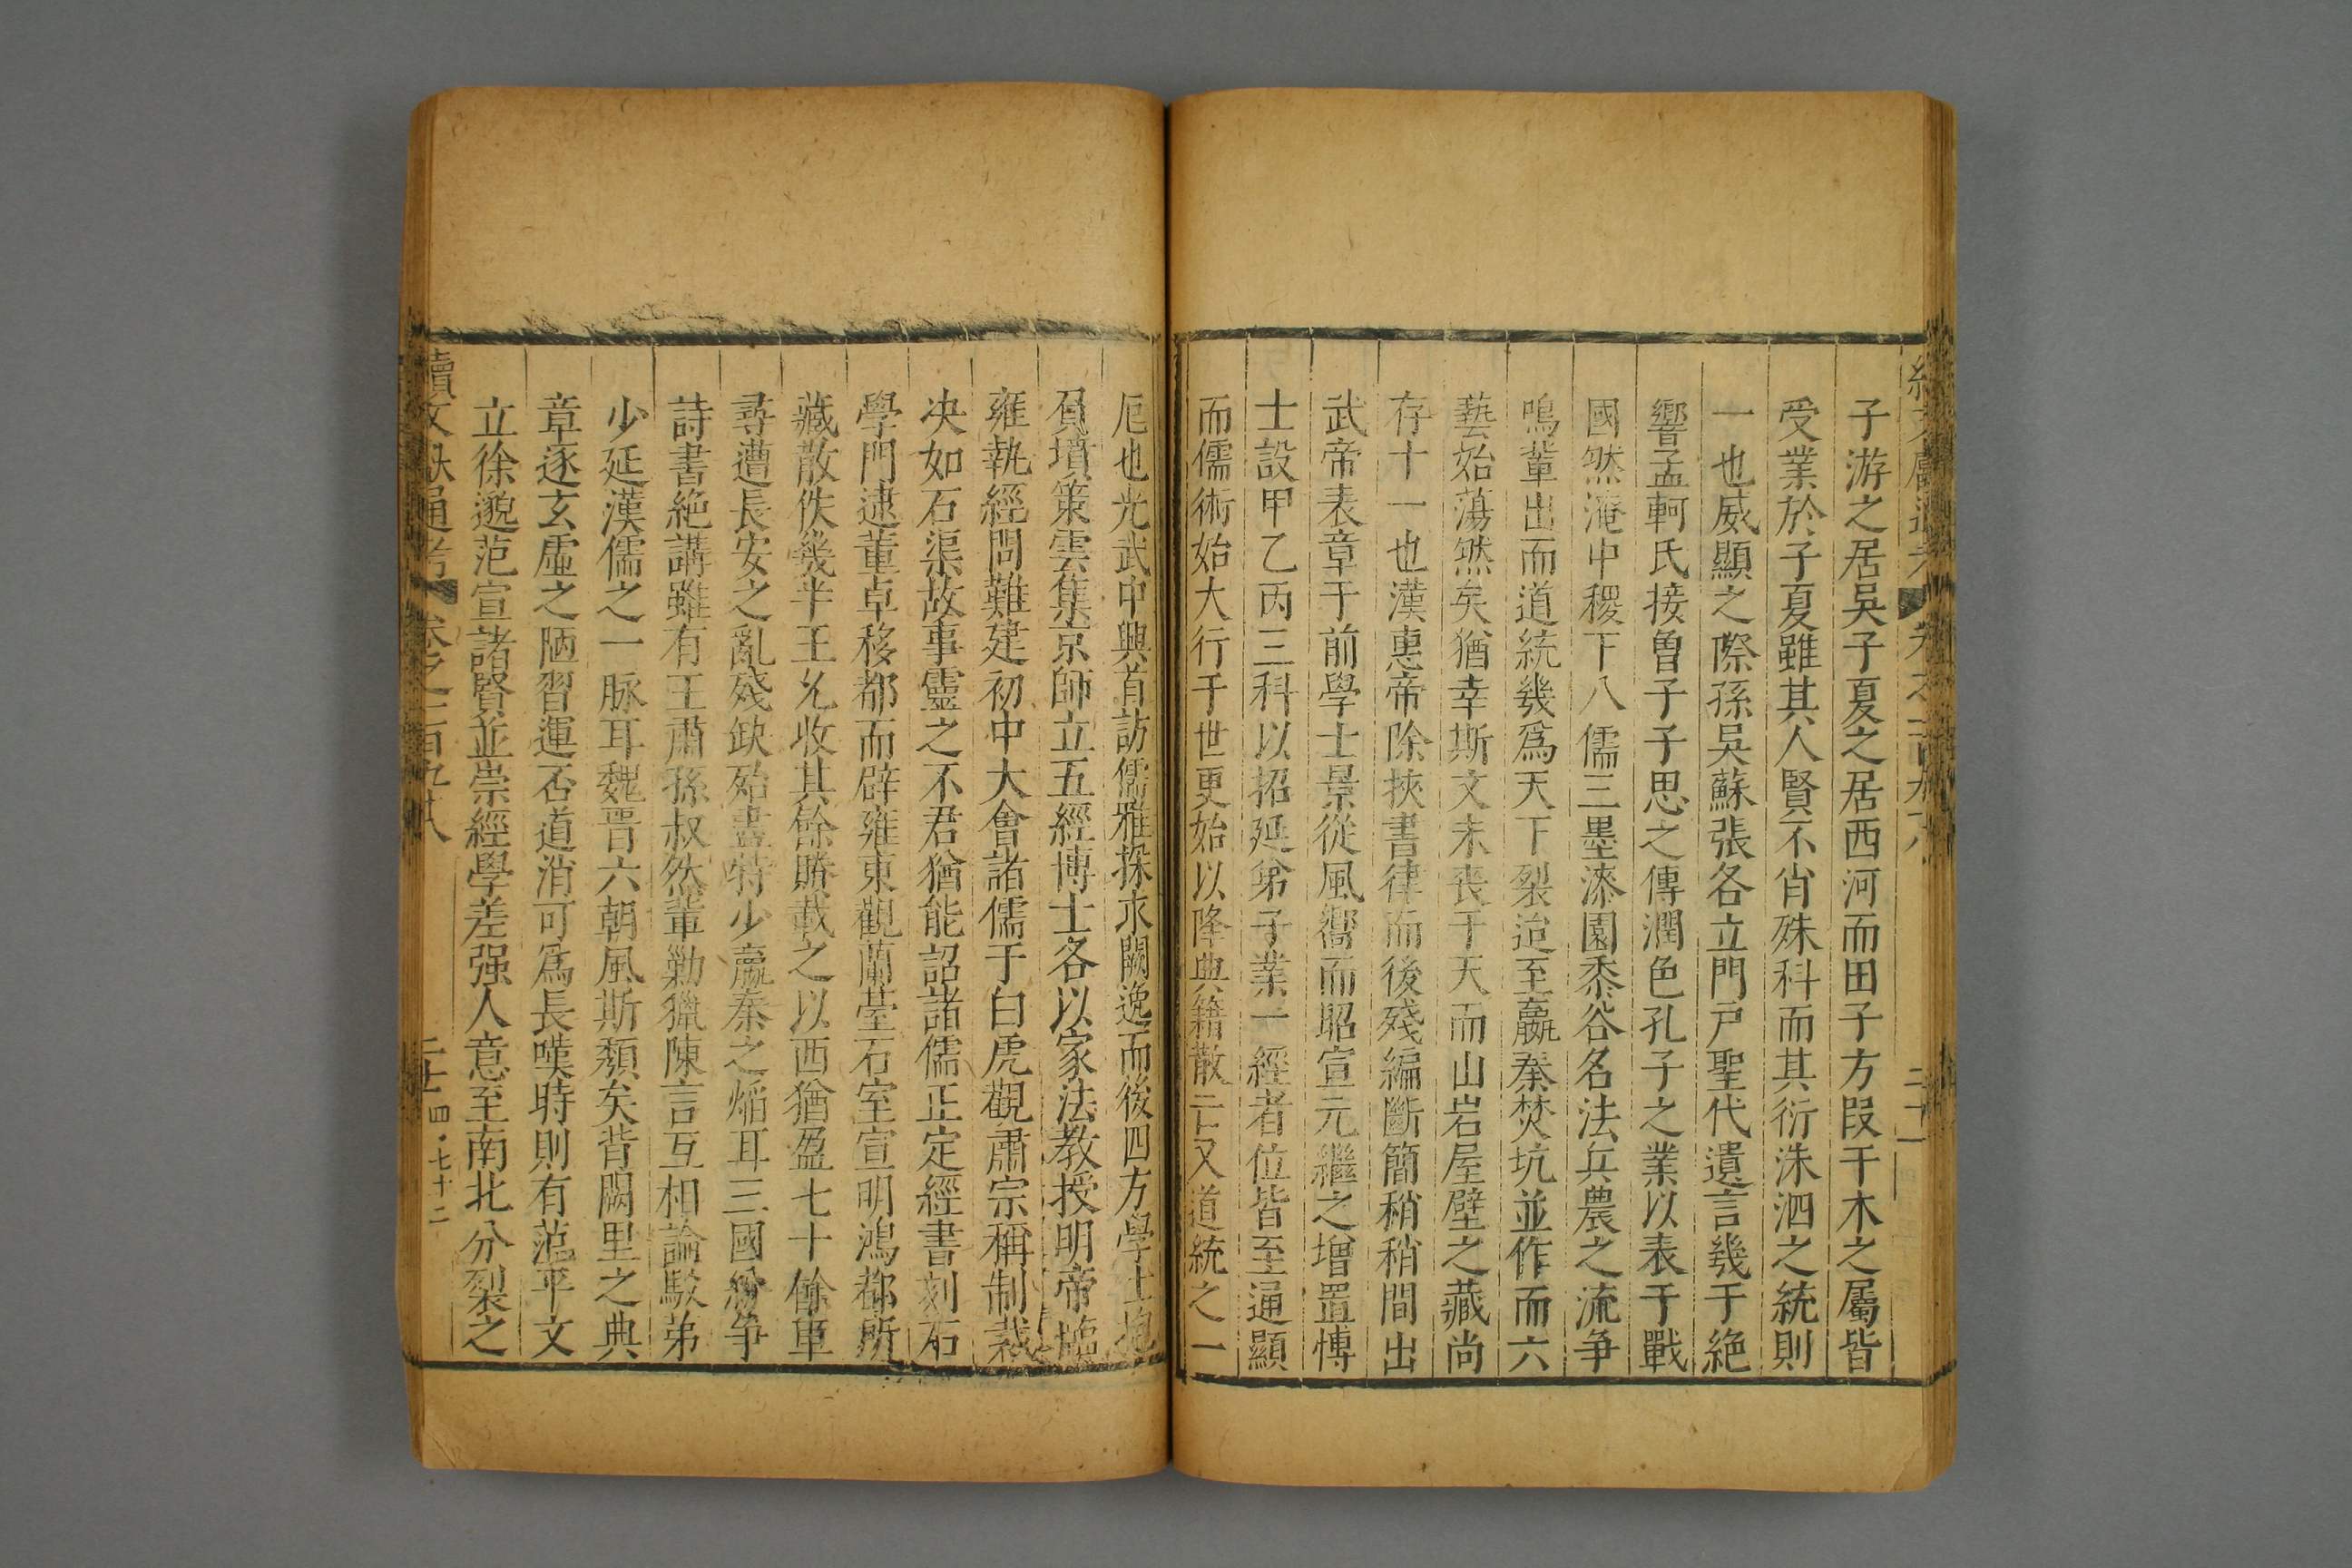 子游之居吳子夏之居西河而田子方段干木之屬皆
受業於子夏雖其人賢不肖殊科而其衍洙泗之統則
一也威顯之際孫吳蘇張各立門戶聖代遺言幾于絶
響孟軻氏接曾子子思之傳潤色孔子之業以表于戰
國然淹中稷下八儒三墨漆園黍谷名法兵農之流爭
鳴輩出而道統幾爲天下裂迨至嬴秦焚坑並作而六
藝始蕩然矣猶幸斯文未喪于天而山岩屋壁之藏尚
存十一也漢惠帝除挾書律而後殘編斷簡稍稍間出
武帝表章于前學士景從風嚮而昭宣元繼之增置博
士設甲乙丙三科以招延弟子業一經者位皆至通顯
而儒術始大行于世更始以降典籍散亡又道統之一
厄也光武中興首訪儒雅採求闕逸而後四方學士抱
負墳策雲集京師立五經博士各以家法教授明帝臨
雍執經問難建初中大會諸儒于白虎觀肅宗稱制裁
決如石渠故事靈之不君猶能詔諸儒正定經書刻石
學門逮董卓移都而辟雍東觀蘭薹石室宣明鴻都所
藏散佚幾半王允收其餘勝載之以西猶盈七十餘車
尋遭長安之亂殘缺殆盡特少嬴秦之焰耳三國紛爭
詩書絶講雖有王肅孫叔然輩勦獵陳言互相論駁弟
少延漢儒之一脉耳魏晉六朝風斯頹矣背闕里之典
章逐玄虛之陋習運否道消可爲長嘆時則有范平文
立徐邈范宣諸賢並崇經學差强人意至南北分裂之
續文獻通考 卷之二百九十八 二十 四·七十二